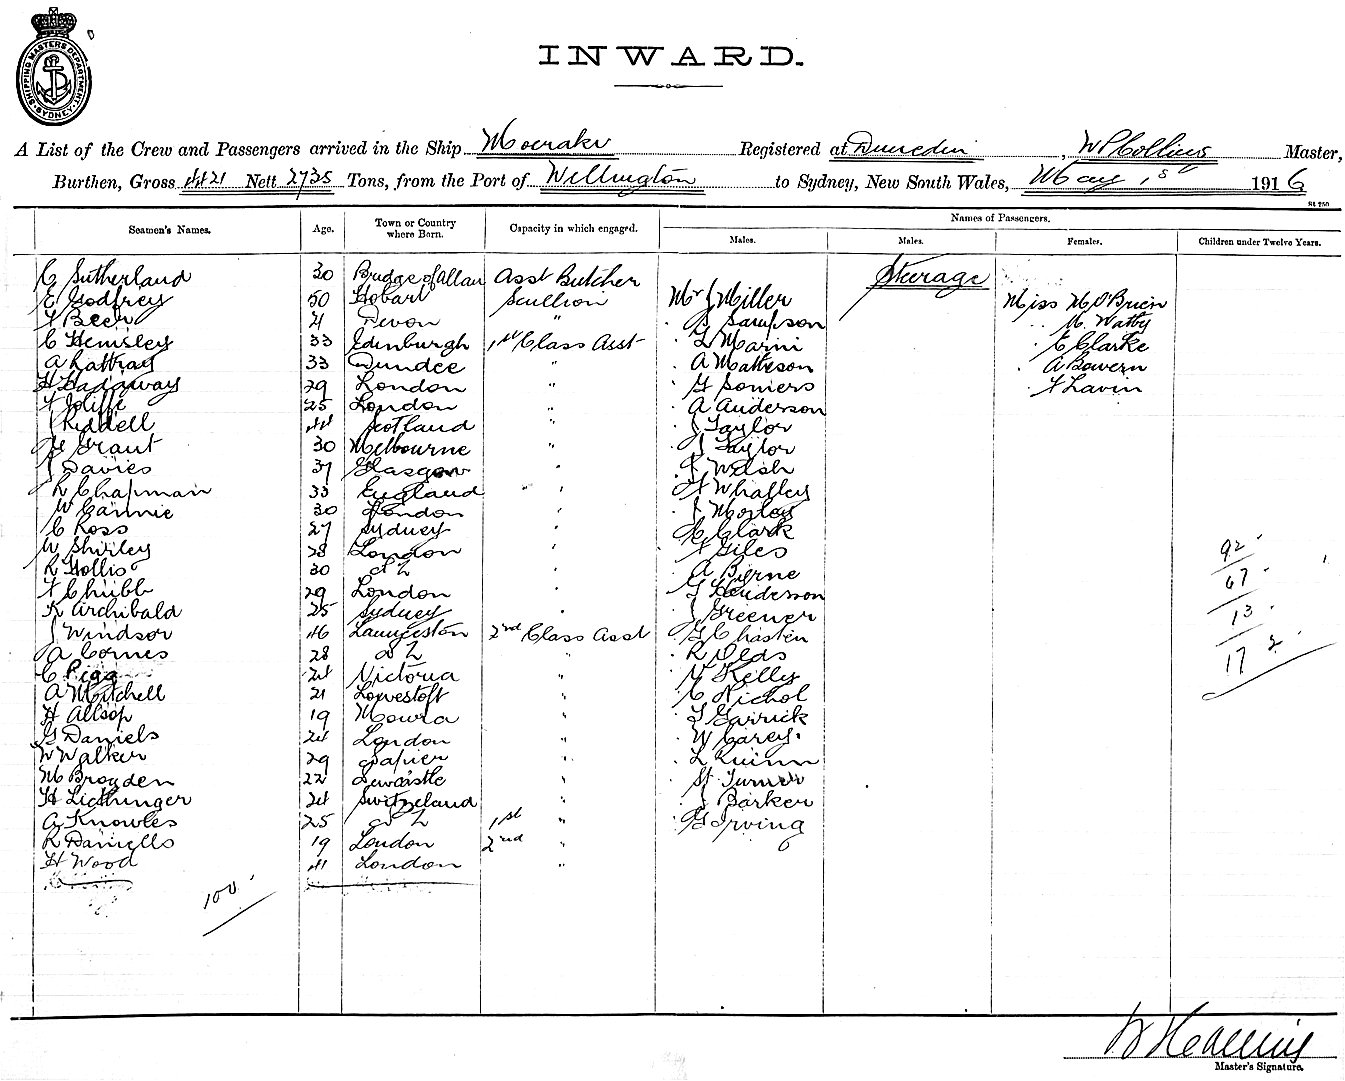 SHIPPING MASTERS DEPARTMENT SYDNEY
INWARD.
A List of the Crew and Passengers arrived in the Ship Moeraki Registered at Dunedin, W Collins Master,
Burthen, Gross 4421 Nett 2735 Tons, from the Port of Wellington to Sydney, New South Wales, May 1st 1916
Names of Passengers.
Seamen's Names. Age. Town or Country where Born. Capacity in which engaged. Males. Males. Females. Children under Twelve Years.
C Sutherland 30 Bridge of Allan Asst Butcher Steerage
E Godfrey 50 Hobart Scullion Mr J Miller Miss M O'Brien
F Beer 21 Devon " Sampson " M Watby
C Hemsley 33 Edinburgh 1st Class Asst " L Marni " E Clarke
A Rattray 33 Dundee " " A Matheson " A Bowern
H Hadaway 29 London " " G Somers " F Lavin
F Joliffe 25 London " " A Anderson
J Riddell 44 Scotland " " J Taylor
Grant 30 Melbourne " " J Taylor
J Davies 37 Glasgow " " J Welsh
R Chapman 33 England " " Whalley
W Cannie 30 London " " J Morley
C Ross 27 Sydney " " Clark
W Shirley 28 London " " F Giles 92
R Hollis 30 N Z " " A Byrne 67
F Chubb 29 London " " G Henderson
K Archibald 25 Sydney " " J Greener 13
J Windsor 46 Launceston 2nd Class Asst " G Chasten
A Cornes 28 N Z " " R Olds 172
C Pigg 24 Victoria " " Kelly
A Mitchell 21 Lowestoft " " C Nichol
H Allsop 19 Moura " " Garrick
G Daniels 24 London " " W Carey
W Walker 29 Napier " " L Quinn
M Brogden 22 Newcastle " " Turner
H Licthinger 24 Switzeland " " J Barker
A Knowles 25 N Z 1st " " G Irving
R Daniells 19 London 2nd "
H Wood 41 London "
100
Master's Signature.